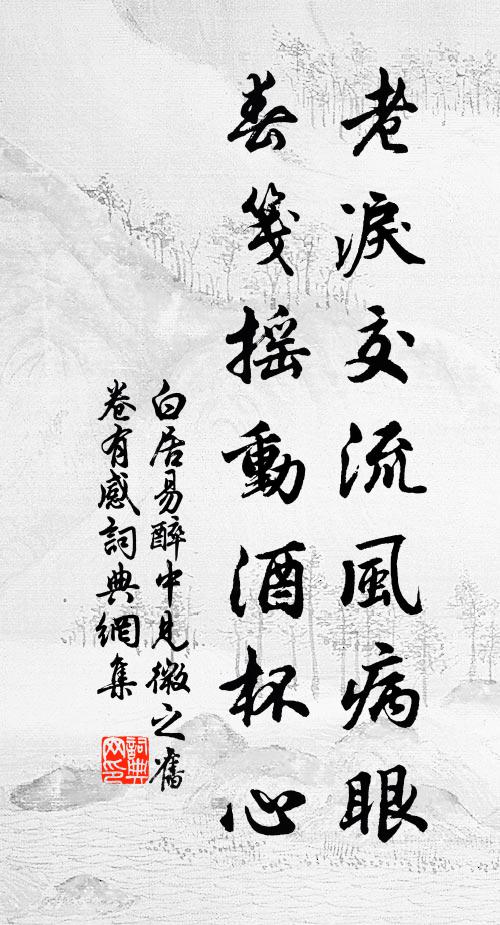 老淚交流風病眼
春箋搖動酒杯心
白居易醉中見微之舊
卷有感詞典網集
詞典
网印